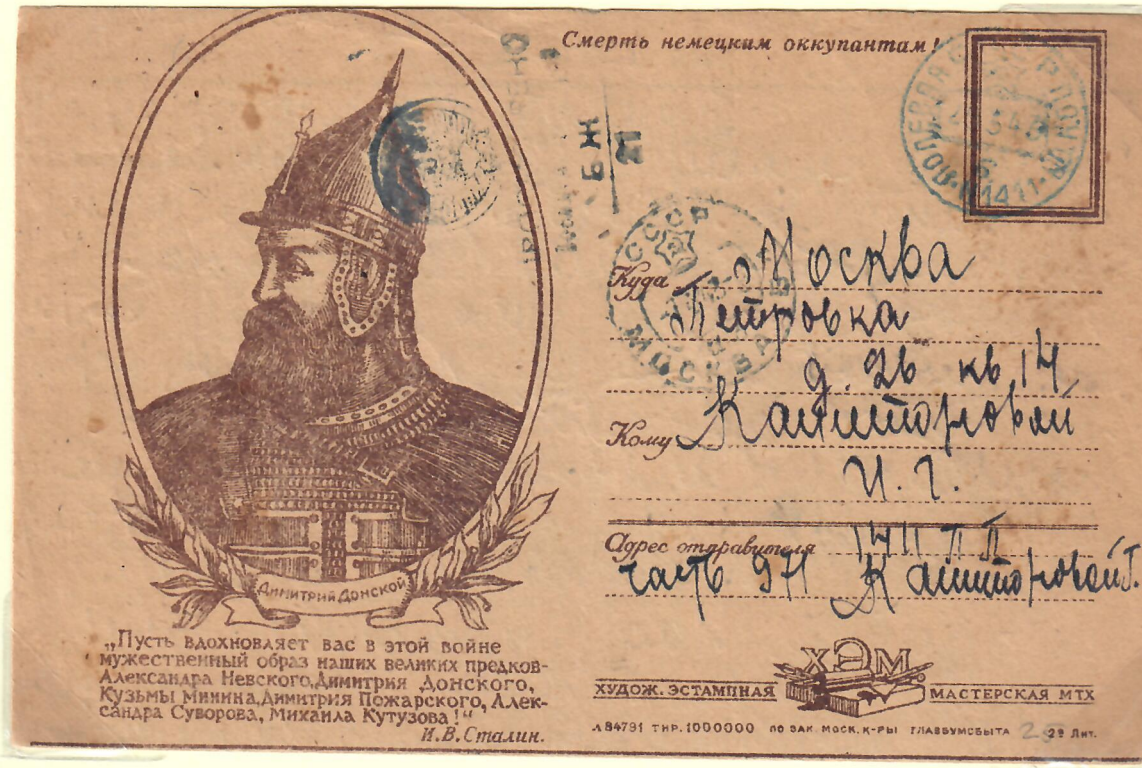 Смерть немецким оккупантам!
БЖ
21
СССР
МОСКВА
Куда Москва
Петровка
д. 26 кв 14
Кому
И. Г.
Адрес отправителя 1411 П П
часть 971
Димитрий Донской
„Пусть вдохновляет вас в этой войне
мужественный образ наших великих предков-
Александра Невского, Димитрия Донского,
Кузьмы Минина, Димитрия Пожарского, Алек-
сандра Суворова, Михаила Кутузова!“
И.В.Сталин.
ХЭМ
ХУДОЖ. ЭСТАМПНАЯ МАСТЕРСКАЯ МТХ
Л 84791 ТИР. 1000000 ПО ЗАК. МОСК. К-РЫ ГЛАВБУМСБЫТА